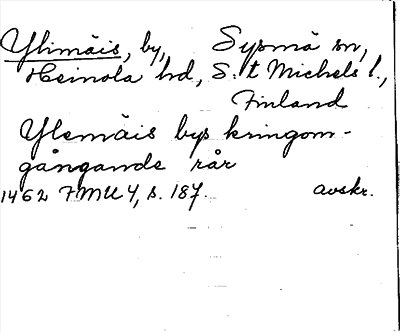 Ylimäis, by, Sysmä sn,
Heinola hd, S:t Michels l.,
Finland
Ylemäis bys kringom-
gångande rår
1462 FMU 4, s. 187. avskr.